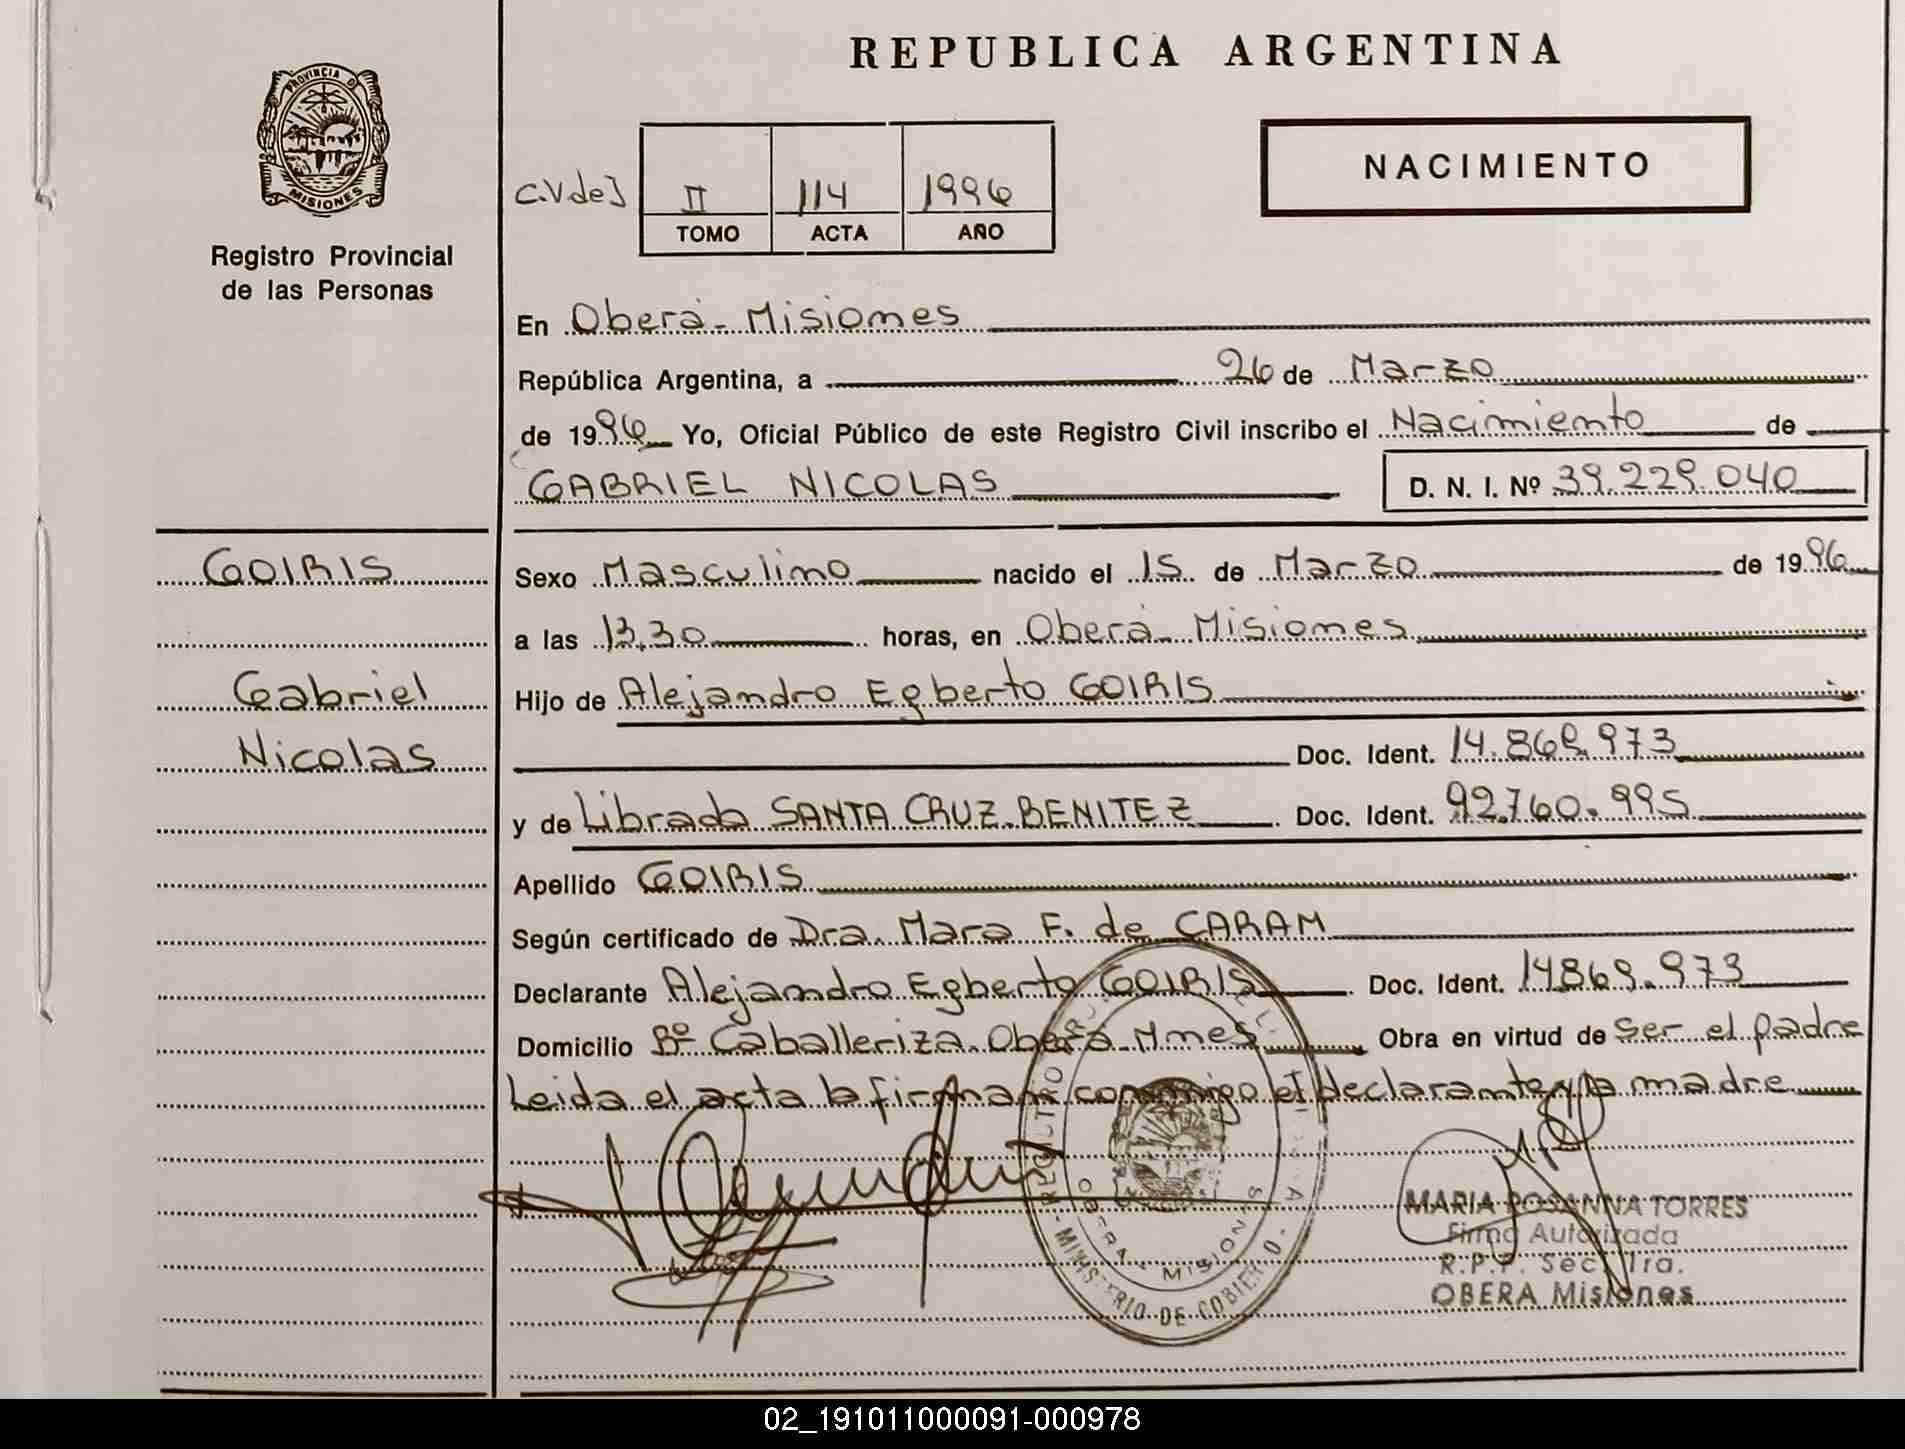 REPUBLICA ARGENTINA
PROVINCIA D
MISIONES
Registro Provincial
de las Personas
C.V de J
II 114 1996
TOMO ACTA AÑO
NACIMIENTO
En Oberá - Misiones
República Argentina, a 26 de Marzo
de 1996 Yo, Oficial Público de este Registro Civil inscribo el Nacimiento de
GABRIEL NICOLAS D. N. I. Nº 39.229.040
GOIRIS
Gabriel
Nicolas
Sexo Masculino nacido el 15 de Marzo de 1996
a las 13,30 horas, en Oberá - Misiones
Hijo de Alejandro Egberto GOIRIS
Doc. Ident. 14.869.973
y de Librada SANTA CRUZ BENITEZ Doc. Ident. 92.760.995
Apellido GOIRIS
Según certificado de Dra. Mara F. de CARAM
Declarante Alejandro Egberto GOIRIS Doc. Ident. 14869.973
Domicilio Bº Caballeriza. Oberá - Mnes Obra en virtud de ser el padre
Leida el acta la firman conmigo el declarante y la madre
MINISTERIO DE GOBIERNO
MARIA ROSANNA TORRES
Firma Autorizada
R.P.P. Sec. 1ra.
OBERA Misiones
02_191011000091-000978